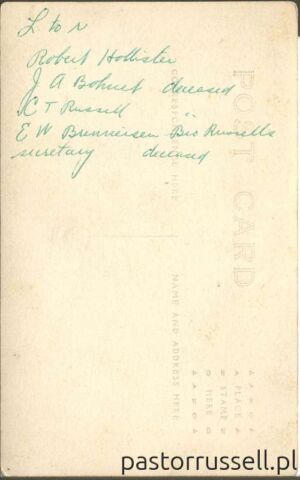 L to r
Robert Hollister
J A Bohnet deceased
C T Russell "
E W Brenneisen Bro Russells
secretary deceased
POST CARD
CORRESPONDENCE HERE
NAME AND ADDRESS HERE
PLACE
STAMP
HERE
pastorrussell.pl